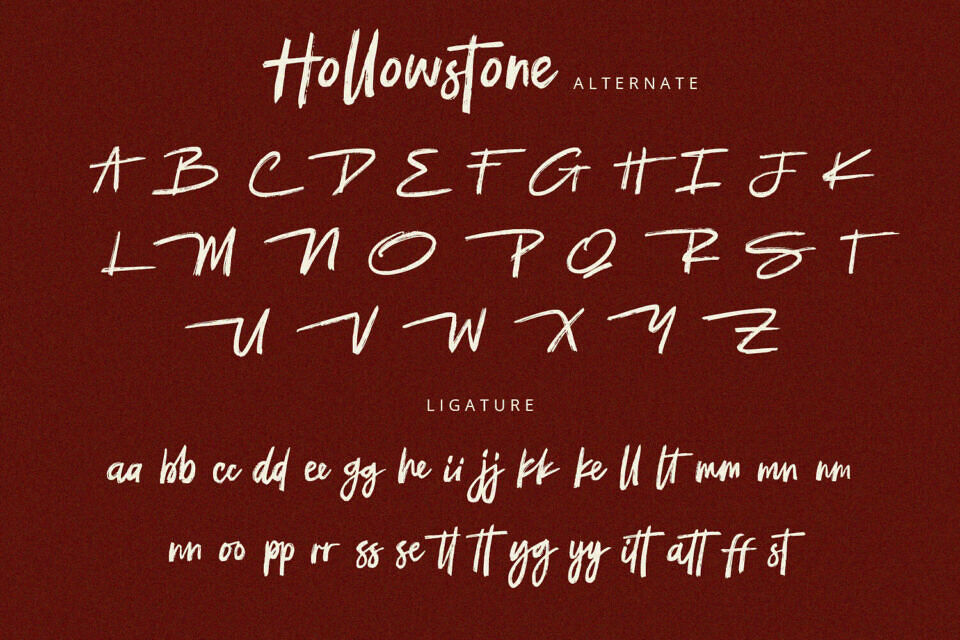 Hollowstone ALTERNATE
A B C D E F G H I J K
L M N O P Q R S T
U V W X Y Z
LIGATURE
aa bb cc dd ee gg he ii jj kk ke ll lt mm mn nm
nn oo pp rr ss se tl tt yg yy itt att ff st